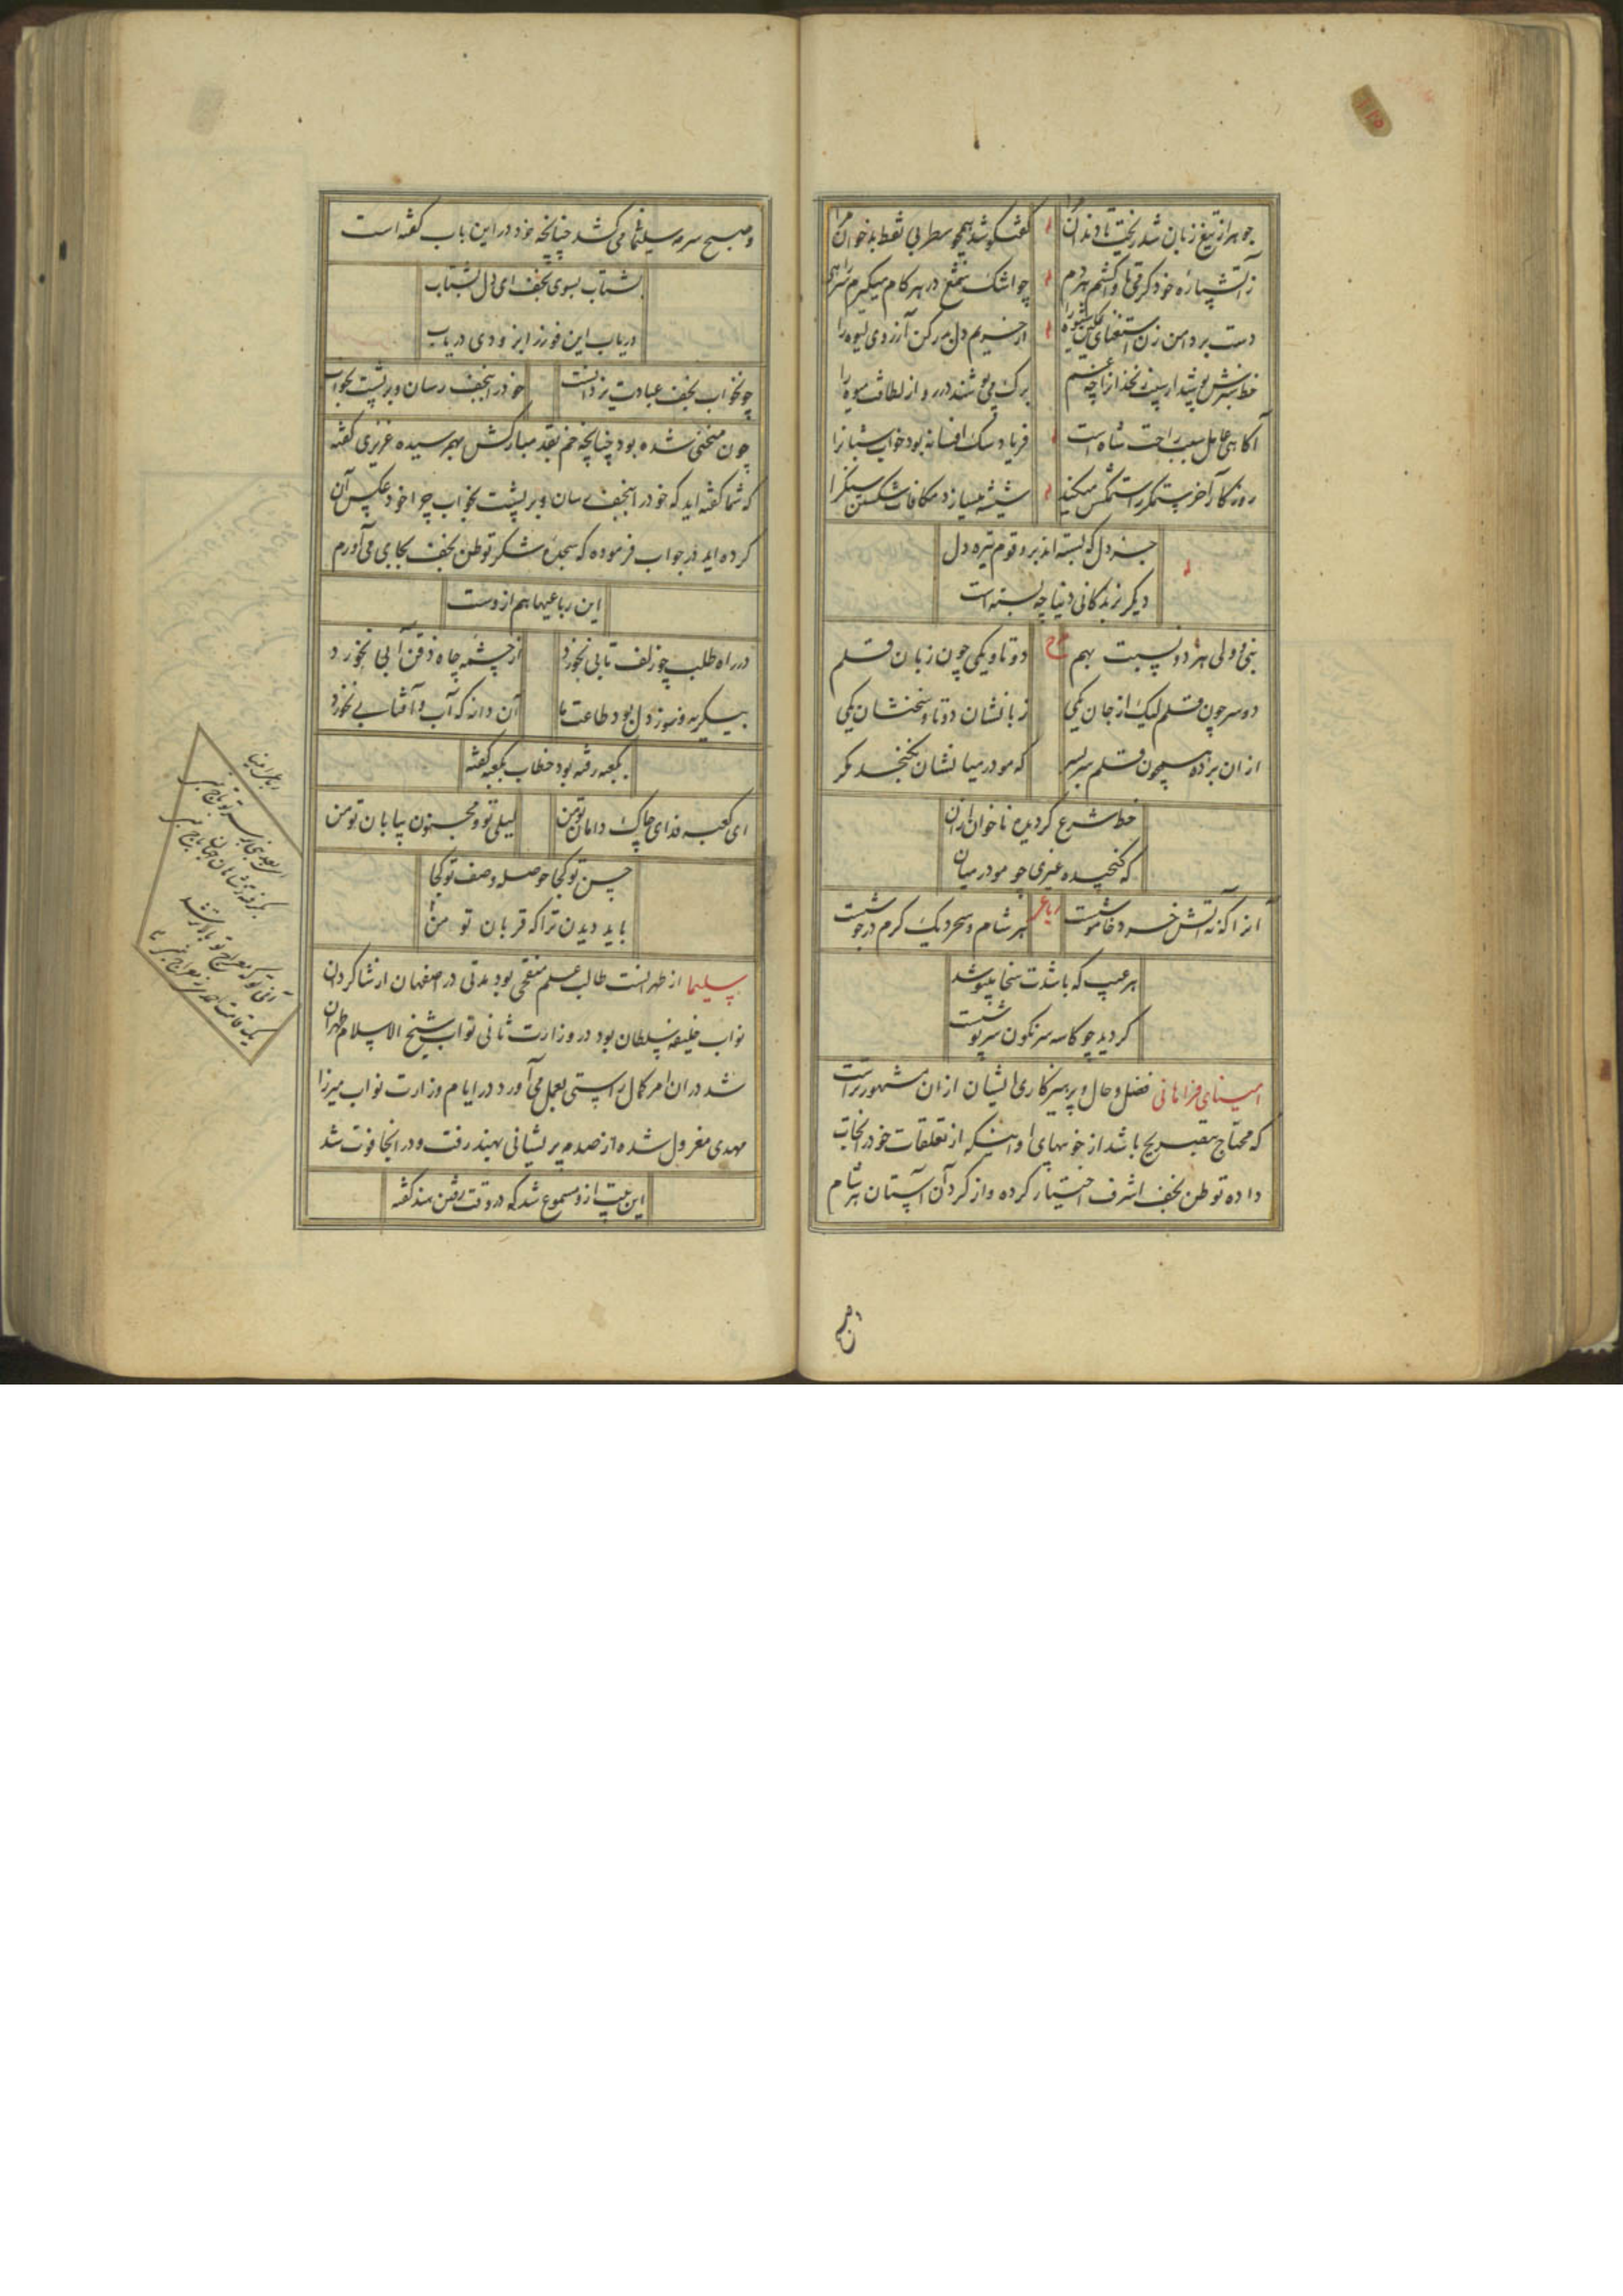 جوهر از تیغ زبان شد ریخت تا دندان مرا
گفتگو شد همچو سطر بی نقط بدخوان مرا
ز آتشپاره خود کر رقیبا واکشم هر دم
چو اشک شمع در هر کام میکیرم سر راهی
دست برد امن زن استغنای را
از خریم دل بدر کن آرزوی لیوه را
خط سبزش پوشد از
برک می پوشند در رو از لطافت میوه را
آکاهی عامل سبب راحت شاه است
فریاد سک افسانه بود خواب شبانرا
روزکار آخر ستمکر را ستمکش میکند
شیشه میسازد مکافات شکستن سنکرا
جز دل که بسته اند برو قوم تیره دل
دیکر بزندکانی دنیا چه بسته است
نبی و ولی هر دو نسبت بهم
دو تا و یکی چون زبان قلم
دو سر چون قلم لیک از جان یکی
زبانشان دو تا و سخنشان یکی
از ان برده همچون قلم سر بسر
که مو در میانشان نکنجد مکر
خط شرع کردیده ناخوان از ان
که کنجیده غیری چو مو در میان
رباعی
انرا که نه آتش خرد خاموشست
هر شام و سحر دیک کرم در جوشست
هر عیب که باشدت سخا میپوشد
کردید چو کاسه سرنکون سرپوشست
امینای فراهانی فضل و حال و پرهیزکاری ایشان از ان مشهورتر است
که محتاج بتصریح باشد از خوبیهای او اینکه از تعلقات خود را نجات
داده توطن نجف اشرف اختیار کرده و از کرد آن آستان هر شام
و صبح سرمه سلیمانی میکشد چنانچه خود در این باب کفته است
بشتاب بسوی نجف ای دل بشتاب
دریاب این فوز از ایزودی دریاب
چون خواب نجف عبادت یزدانست
خود را بنجف رسان و بر پشت بخواب
چون منحنی شده بود چنانچه خم بقد مبارکش بهم رسیده عزیزی کفته
که شما کفته اید که خود را بنجف رسان و بر پشت بخواب چرا خود عکس آن
کرده اید در جواب فرموده که سجده شکر توطن نجف بجا می آورم
این رباعیها هم از وست
در راه طلب چو زلف تابی نخورد
از چشمه چاه ذقن آبی نخورد
بیکریه و سوز دل بود طاعت ما
آن دانه که آب و آفتابی نخورد
بکعبه رفته بود خطاب بکعبه کفته
ای کعبه فدای چاک دامان تو من
لیلی تو و مجنون بیابان تو من
حسن تو کجا حوصله وصف تو کجا
باید دیدن ترا که قربان تو من
سلیما از طهرانست طالب علم منقحی بود مدتی در اصفهان از شاکردان
نواب خلیفه سلطان بود در وزارت ثانی نواب شیخ الاسلام طهران
شد در ان امر کمال راستی بعمل می آورد در ایام وزارت نواب میرزا
مهدی معزول شده از صدمه پریشانی بهند رفت و در انجا فوت شد
این بیت ازو مسموع شد که در وقت رفتن هند کفته